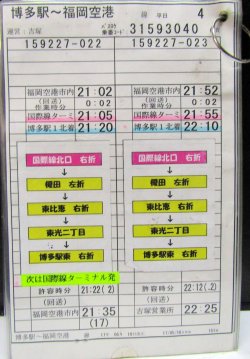 博多駅～福岡空港 線 平日 4
運営:吉塚 乗務コード 31593040
159227-022 159227-023
福岡空港市内 21:02 福岡空港市内 21:52
(回送) 0:02 (回送) 0:02
作業時分 作業時分
国際線ターミ 21:05 国際線ターミ 21:55
博多駅1北着 21:20 博多駅1北着 22:10
国際線北口 右折 国際線北口 右折
榎田 左折 榎田 左折
東比恵 右折 東比恵 右折
東光二丁目 東光二丁目
博多駅東 右折 博多駅東 右折
次は国際線ターミナル発
許容時分 21:22(.2) 許容時分 22:12(.2)
(回送) (回送)
福岡空港市内 21:35 吉塚営業所 22:25
(17)
博多駅～福岡空港